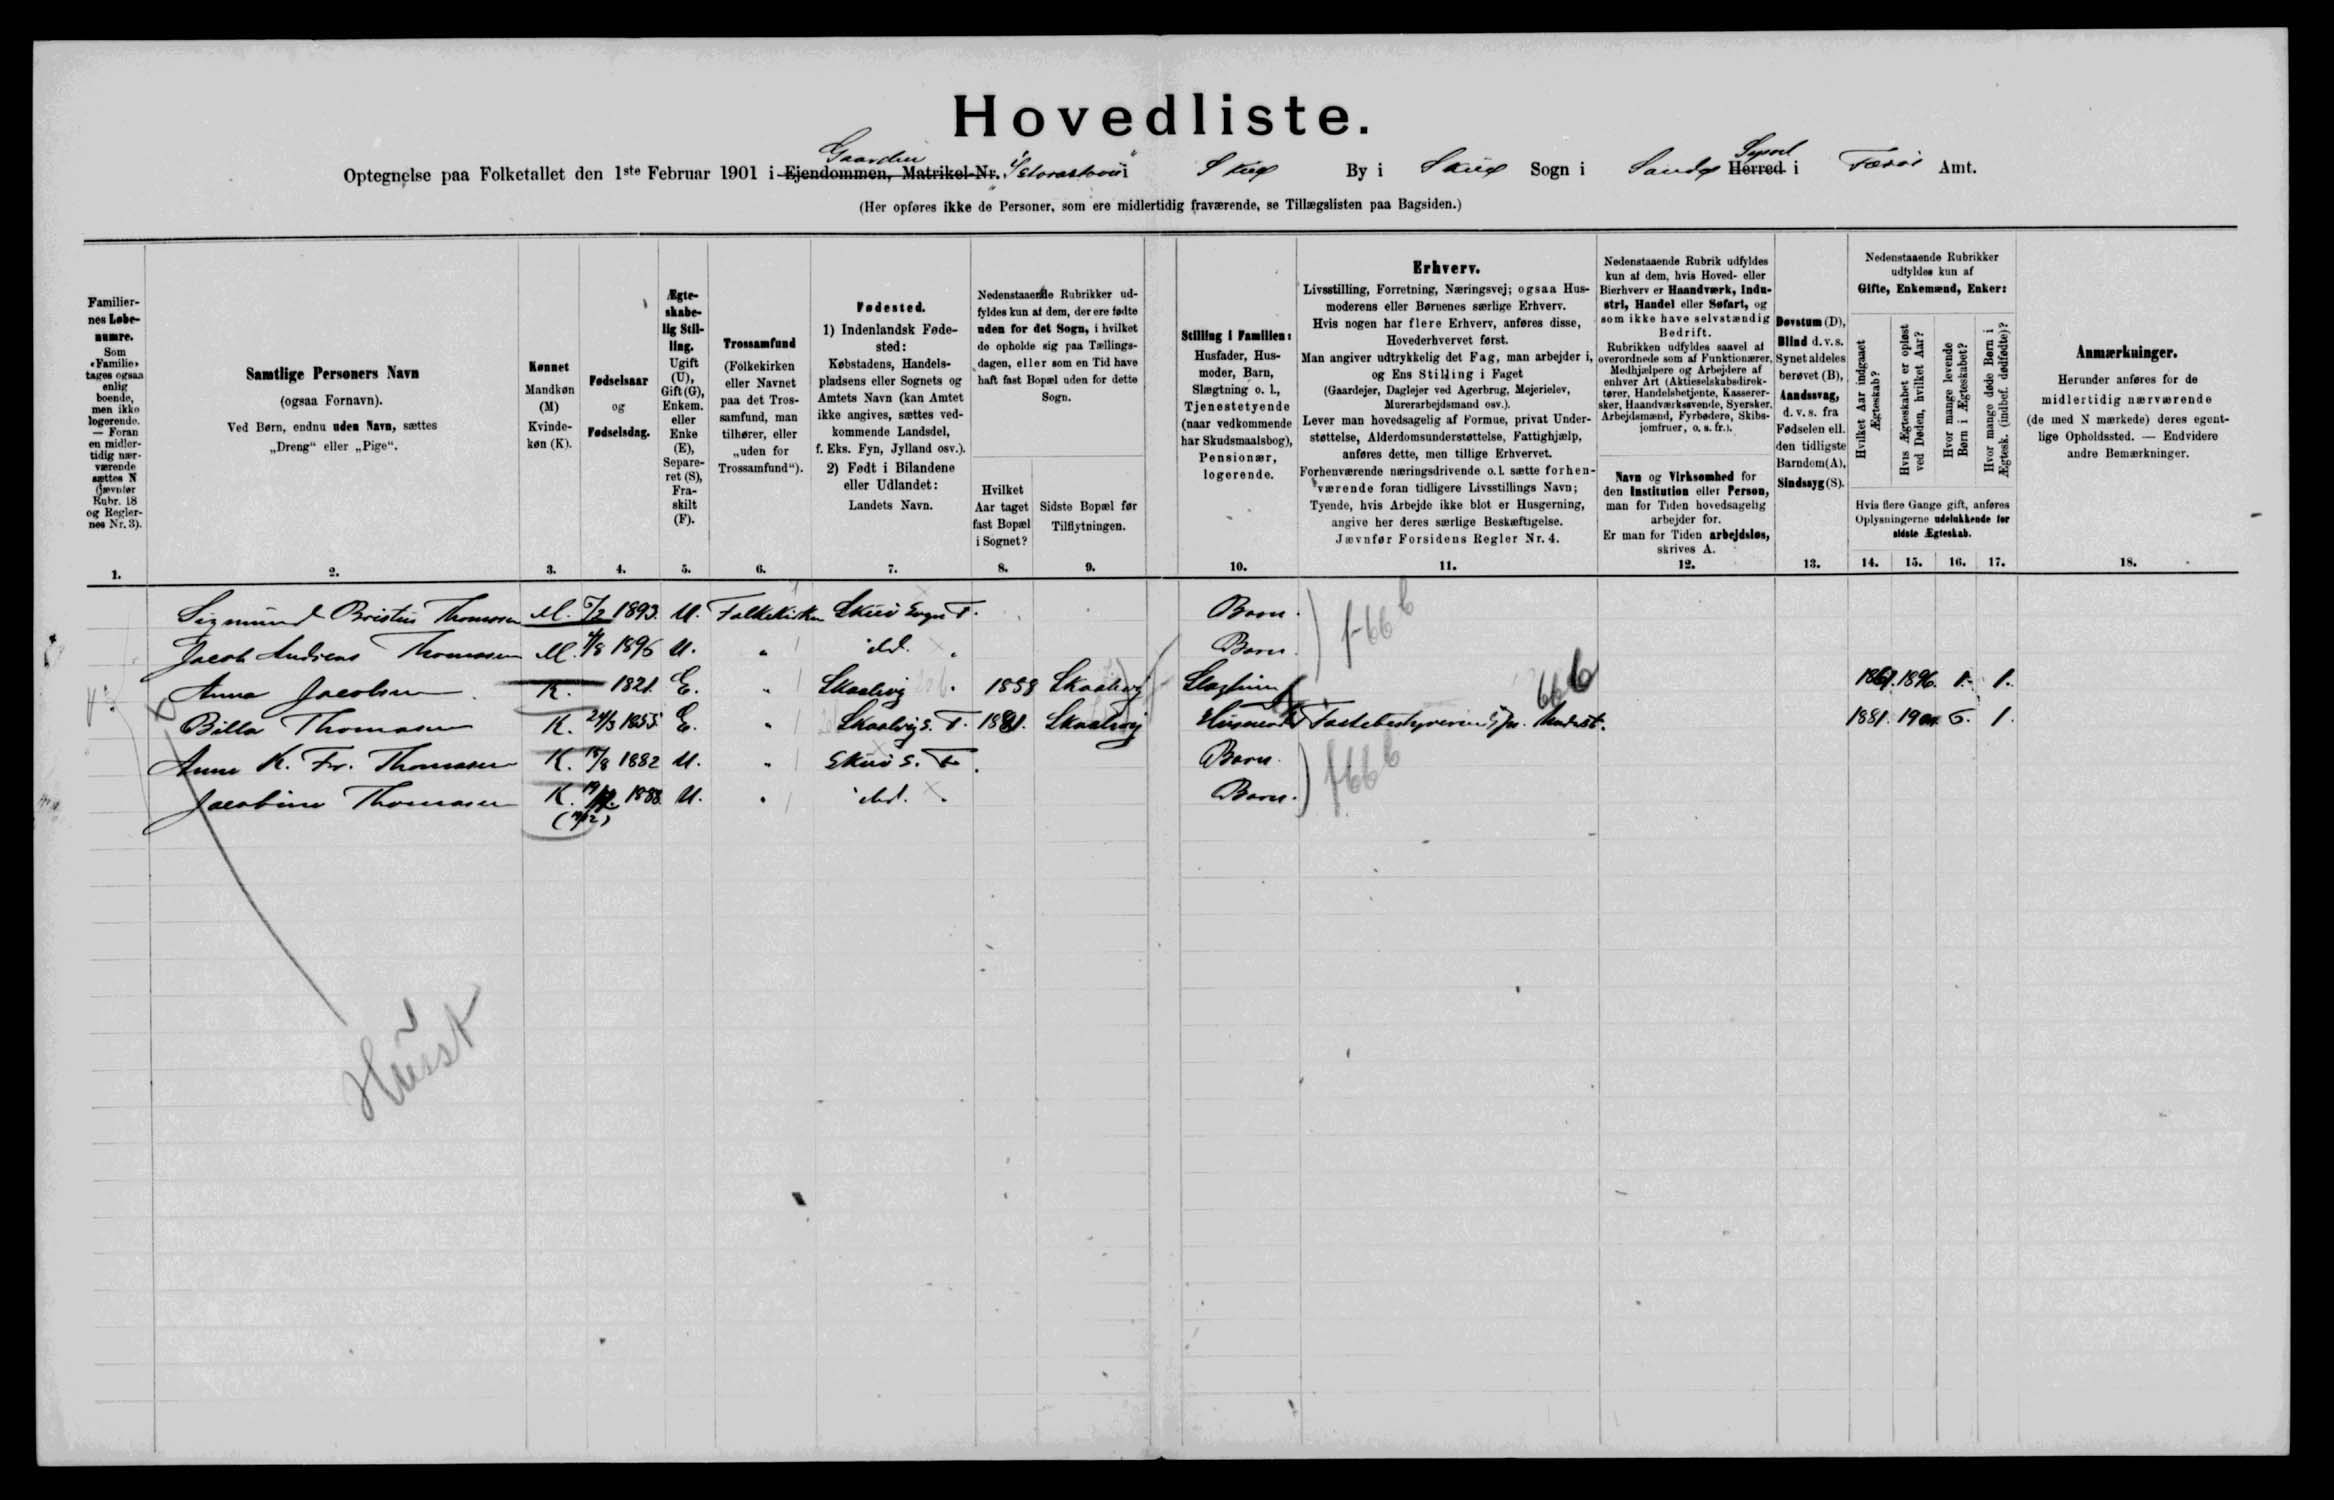 Hovedliste.
Gaarden Syssel
Optegnelse paa Folketallet den 1ste Februar 1901 i Ejendommen, Matrikel-Nr. i Skuø By i Skuø Sogn i Sandø Herred i Færøe Amt.
(Her opføres ikke de Personer, som ere midlertidig fraværende, se Tillægslisten paa Bagsiden.)
Familiernes Løbenumre.
Som «Familie» tages ogsaa enlig boende, men ikke logerende. — Foran en midlertidig nærværende sættes N (jævnfør Rubr. 18 og Reglernes Nr. 3).
1.
Samtlige Personers Navn
(ogsaa Fornavn).
Ved Børn, endnu uden Navn, sættes
„Dreng“ eller „Pige“.
2.
Kønnet
Mandkøn
(M)
Kvinde-
køn (K).
3.
Fødselsaar
og
Fødselsdag.
4.
Ægte-
skabe-
lig Stil-
ling.
Ugift
(U),
Gift (G),
Enkem.
eller
Enke
(E),
Separe-
ret (S),
Fra-
skilt
(F).
5.
Trossamfund
(Folkekirken
eller Navnet
paa det Tros-
samfund, man
tilhører, eller
„uden for
Trossamfund“).
6.
Fødested.
1) Indenlandsk Føde-
sted:
Købstadens, Handels-
pladsens eller Sognets og
Amtets Navn (kan Amtet
ikke angives, sættes ved-
kommende Landsdel,
f. Eks. Fyn, Jylland osv.).
2) Født i Bilandene
eller Udlandet:
Landets Navn.
7.
Nedenstaaende Rubrikker ud-
fyldes kun af dem, der ere fødte
uden for det Sogn, i hvilket
de opholde sig paa Tællings-
dagen, eller som en Tid have
haft fast Bopæl uden for dette
Sogn.
Hvilket
Aar taget
fast Bopæl
i Sognet?
8.
Sidste Bopæl før
Tilflytningen.
9.
Stilling i Familien:
Husfader, Hus-
moder, Barn,
Slægtning o. l.,
Tjenestetyende
(naar vedkommende
har Skudsmaalsbog),
Pensionær,
logerende.
10.
Erhverv.
Livsstilling, Forretning, Næringsvej; ogsaa Hus-
moderens eller Børnenes særlige Erhverv.
Hvis nogen har flere Erhverv, anføres disse,
Hovederhvervet først.
Man angiver udtrykkelig det Fag, man arbejder i,
og Ens Stilling i Faget
(Gaardejer, Daglejer ved Agerbrug, Mejerielev,
Murerarbejdsmand osv.).
Lever man hovedsagelig af Formue, privat Under-
støttelse, Alderdomsunderstøttelse, Fattighjælp,
anføres dette, men tillige Erhvervet.
Forhenværende næringsdrivende o. l. sætte forhen-
værende foran tidligere Livsstillings Navn;
Tyende, hvis Arbejde ikke blot er Husgerning,
angive her deres særlige Beskæftigelse.
Jævnfør Forsidens Regler Nr. 4.
11.
Nedenstaaende Rubrik udfyldes
kun af dem, hvis Hoved- eller
Bierhverv er Haandværk, Indu-
stri, Handel eller Søfart, og
som ikke have selvstændig
Bedrift.
Rubrikken udfyldes saavel af
overordnede som af Funktionærer,
Medhjælpere og Arbejdere af
enhver Art (Aktieselskabsdirek-
tører, Handelsbetjente, Kasserer-
sker, Haandværkssvende, Syersker,
Arbejdsmænd, Fyrbødere, Skibs-
jomfruer, o. s. fr.).
Navn og Virksomhed for
den Institution eller Person,
man for Tiden hovedsagelig
arbejder for.
Er man for Tiden arbejdsløs,
skrives A.
12.
Døvstum (D),
Blind d. v. s.
Synet aldeles
berøvet (B),
Aandssvag,
d. v. s. fra
Fødselen ell.
den tidligste
Barndom (A),
Sindssyg (S).
13.
Nedenstaaende Rubrikker
udfyldes kun af
Gifte, Enkemænd, Enker:
Hvilket Aar indgaaet Ægteskab?
Hvis Ægteskabet er opløst ved Døden, hvilket Aar?
Hvor mange levende Børn i Ægteskabet?
Hvor mange døde Børn i Ægtesk. (indbef. dødfødte)?
Hvis flere Gange gift, anføres
Oplysningerne udelukkende for
sidste Ægteskab.
14. 15. 16. 17.
Anmærkninger.
Herunder anføres for de
midlertidig nærværende
(de med N mærkede) deres egent-
lige Opholdssted. — Endvidere
andre Bemærkninger.
18.
Sigmund Thomasen M. 1893. U. Folkekirken Skuø Sogn F. Barn. f-66 b
Jacob Andreas Thomasen M. 4/8 1896 U. " ibd. " Barn.
Anna Jacobsen K. 1821. E. " Skaalvig " 1858 Skaalvig 66 b 1861. 1896. 1. 1.
Billa Thomasen K. 24/3 1855 E. " Skaalvig S. F. 1881. Skaalvig Husmoder 1881. 6. 1.
Anne K. Fr. Thomasen K. 15/8 1882 U. " Skuø S. F. Barn. f66 b
Jacobine Thomasen K. 1888. U. " ibd. " Barn.
Husst